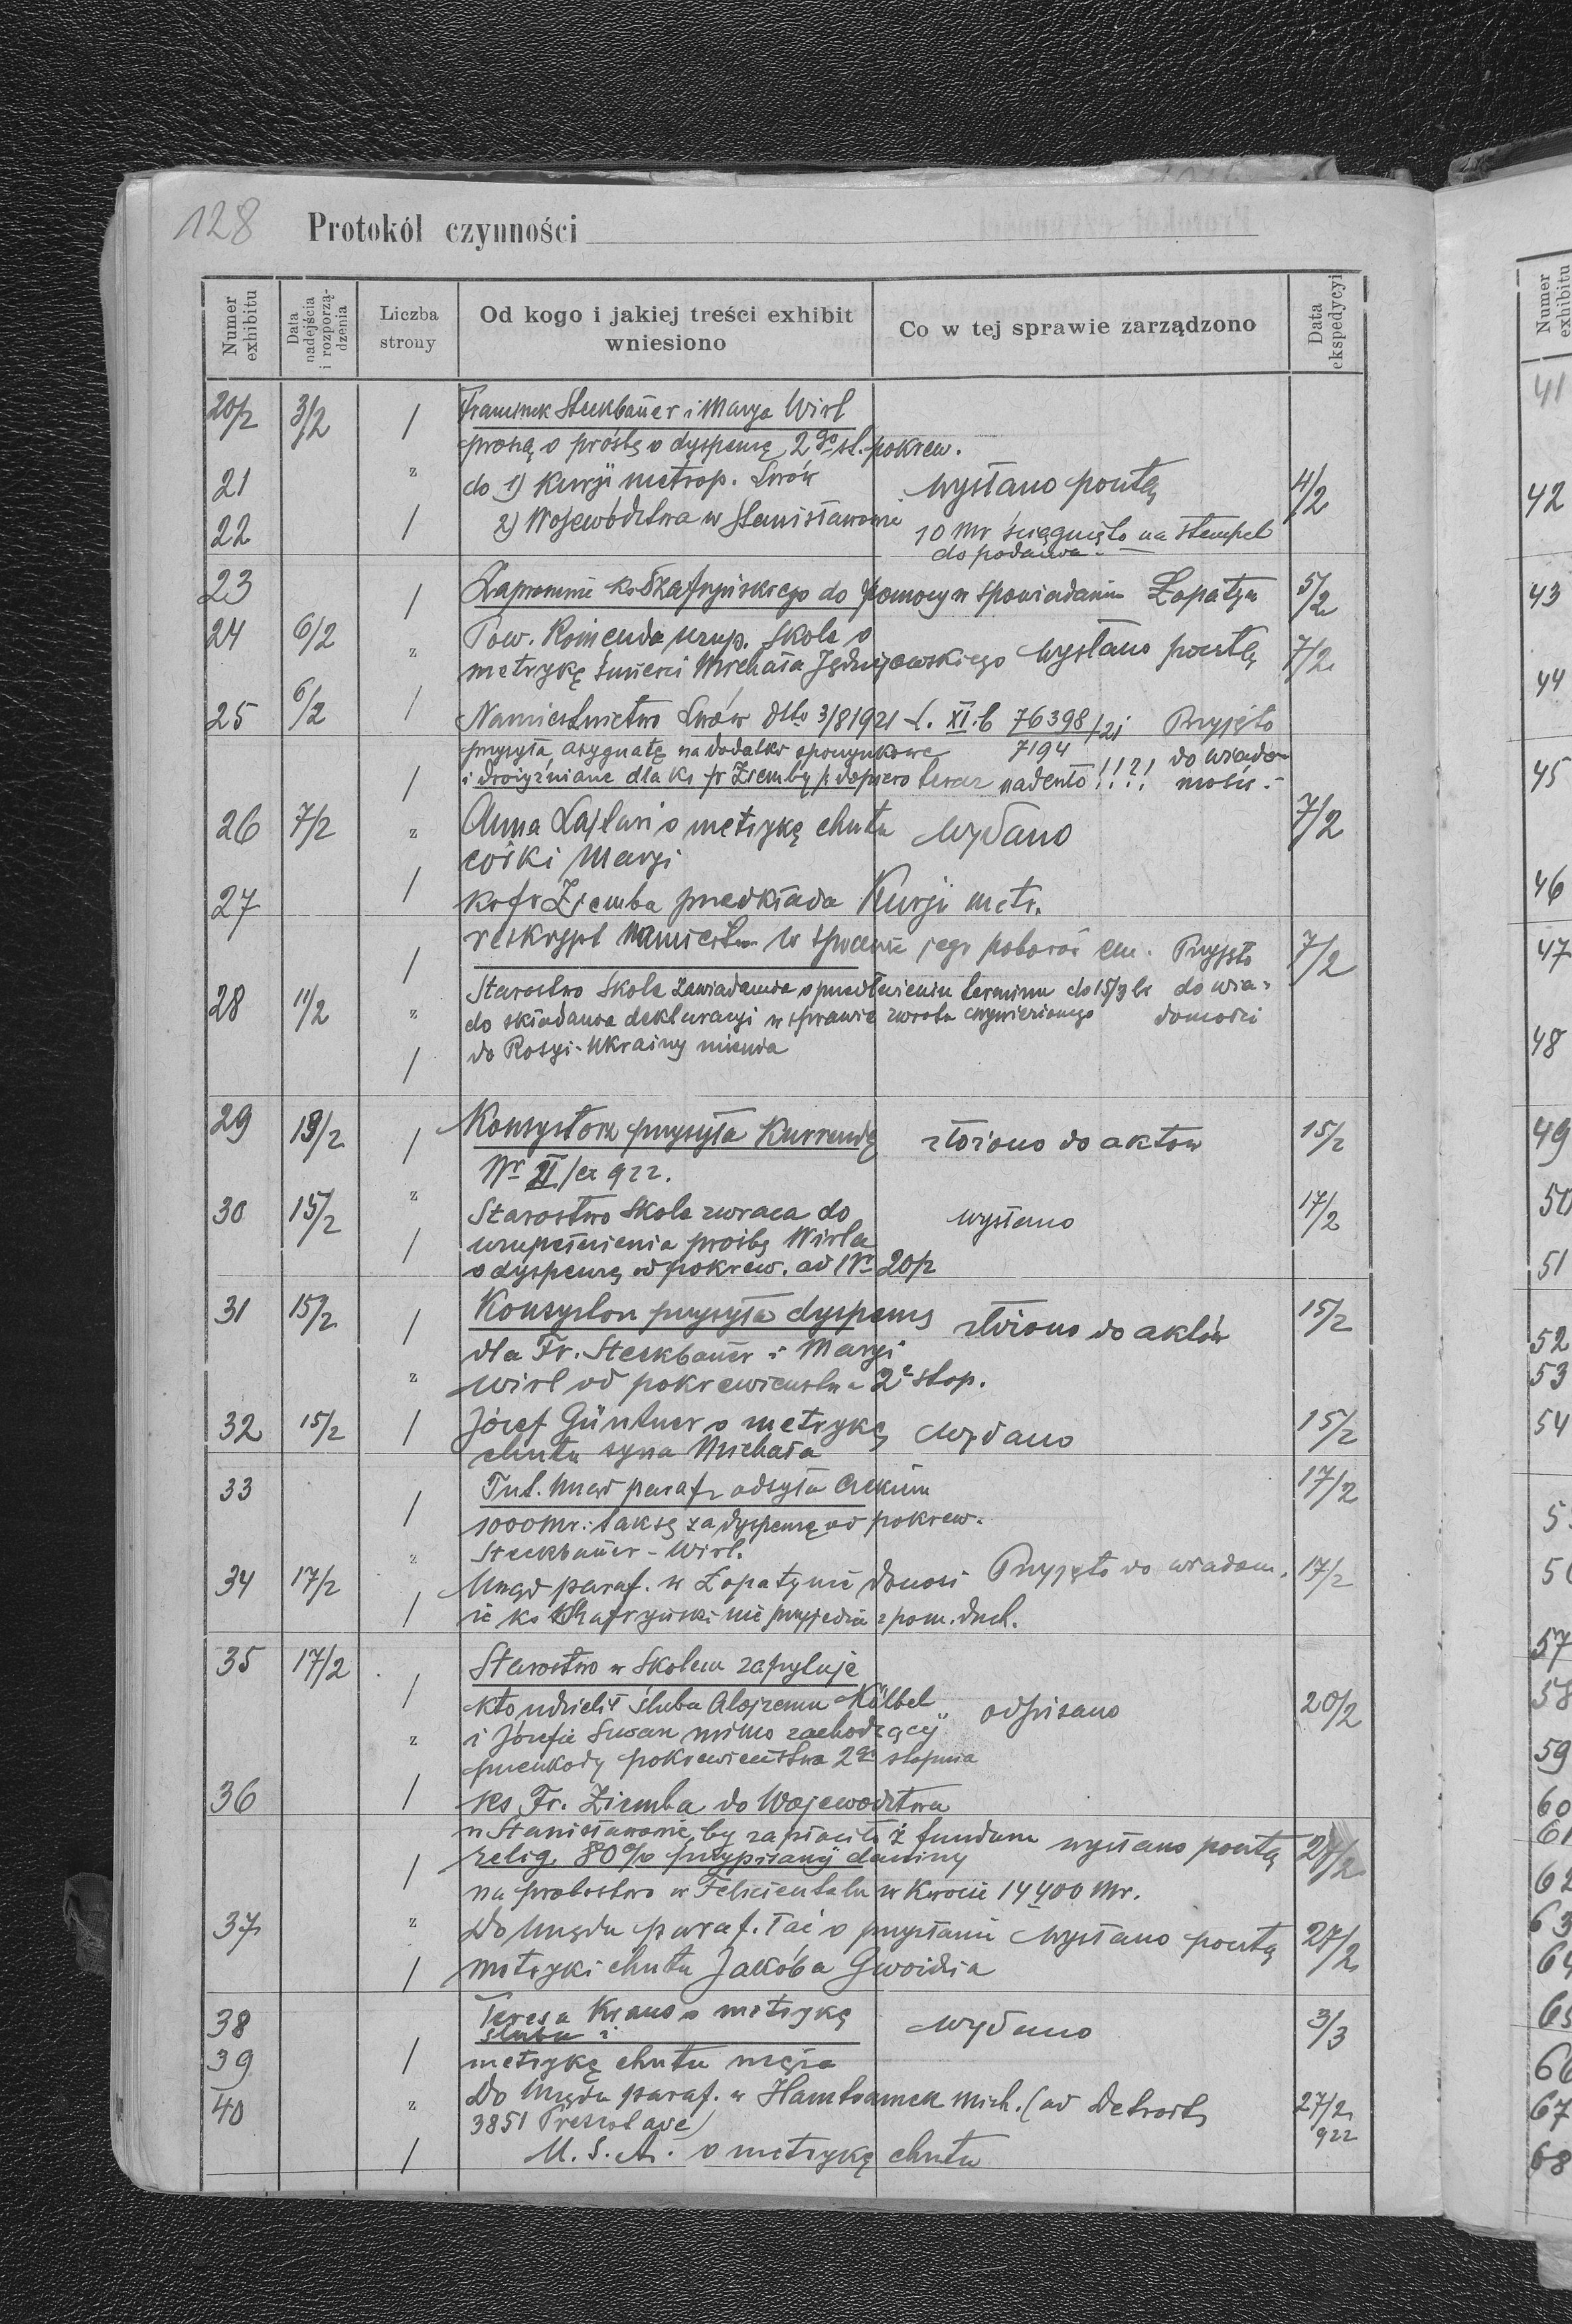 128 Protokół czynności
Numer exhibitu
Data nadejścia i rozporzą-dzenia
Liczba strony
Od kogo i jakiej treści exhibit wniesiono
Co w tej sprawie zarządzono
Data ekspedycyi
20/2 3/2 Steckbauer i Marya Wirl
proszą o prośbę o dyspensę 2go st. pokrew.
21 do 1) Kurji metrop. Lwów wysłano pocztą 4/2
22 2) Województwa w Stanisławowie 10 Mr ściągnięto na stempel
do podania
23 ks Szafryńskiego do pomocy w spowiadaniu Łopatyn 5/2
24 6/2 Pow. Komenda uzup. Skole o
metrykę śmierci Michała wysłano pocztą 7/2
25 6/2 Namiestnictwo Lwów dtto 3/8 1921 L. XI. b 76398/21 Przyjęto
7194
przysyła asygnatę na dodatki do wiado
i drożyźniane dla ks fr Ziemby dopiero teraz !!?! mości -
26 7/2 Anna o metrykę chrztu wydano 7/2
córki Maryi
27 ks fr Ziemba przedkłada Kurji metr.
reskrypt w sprawie jego poborów Przyjęto 7/2
28 11/2 Starostwo Skole zawiadamia o przedłużeniu terminu do 15/3 br do wia-
do składania deklaracyi w sprawie zwrotu wywiezionego domości
do Rosyi-Ukrainy mienia
29 13/2 Konsystorz przysyła Kurrendę złożono do aktów 15/2
Nr II/ex 922.
30 15/2 Starostwo Skole zwraca do wysłano 17/2
uzupełnienia prośbę Wirla
o dyspensę od pokrew. ad Nr 20/2
31 15/2 Konsystorz przysyła dyspensę złożono do aktów 15/2
dla Fr. Steckbauer i Maryi
Wirl od pokrewieństwa 2 stop.
32 15/2 Józef Güntner o metrykę wydano 15/2
chrztu syna Michała
33 Tut. Urząd paraf. odsyła 17/2
1000 Mr. taksę za dyspensę od pokrew.
Steckbauer - Wirl.
34 17/2 Urząd paraf. w Łopatynie donosi Przyjęto do wiadom. 17/2
że ks Szafryński nie przyjedzie z pom. duch.
35 17/2 Starostwo w Skolem zapytuje
kto udzielił ślubu Alojzemu Kölbel odpisano 20/2
i Józefie Susan mimo zachodzącej
przeszkody pokrewieństwa 2go stopnia
36 ks Fr. Ziemba do Województwa
w Stanisławowie, by zapłaciło z fundusu wysłano pocztą
relig. 80% przypisanej daniny
na probostwo w Felicientalu w kwocie 14400 Mr.
37 Do Urzędu paraf. o przysłanie wysłano pocztą 27/2
metryki chrztu Jakóba Gwoździa
38 Teresa Kraus o metrykę wydano 3/3
ślubu i
39 metrykę chrztu męża
40 Do Urzędu paraf. w Hamtramck Mich. (ad Detroit, 27/2
3851 Prescot ave) 922
U. S. A. o metrykę chrztu
Numer exhibitu
41
42
43
44
45
46
47
48
49
50
51
52
53
54
57
58
59
60
61
62
63
64
65
66
67
68